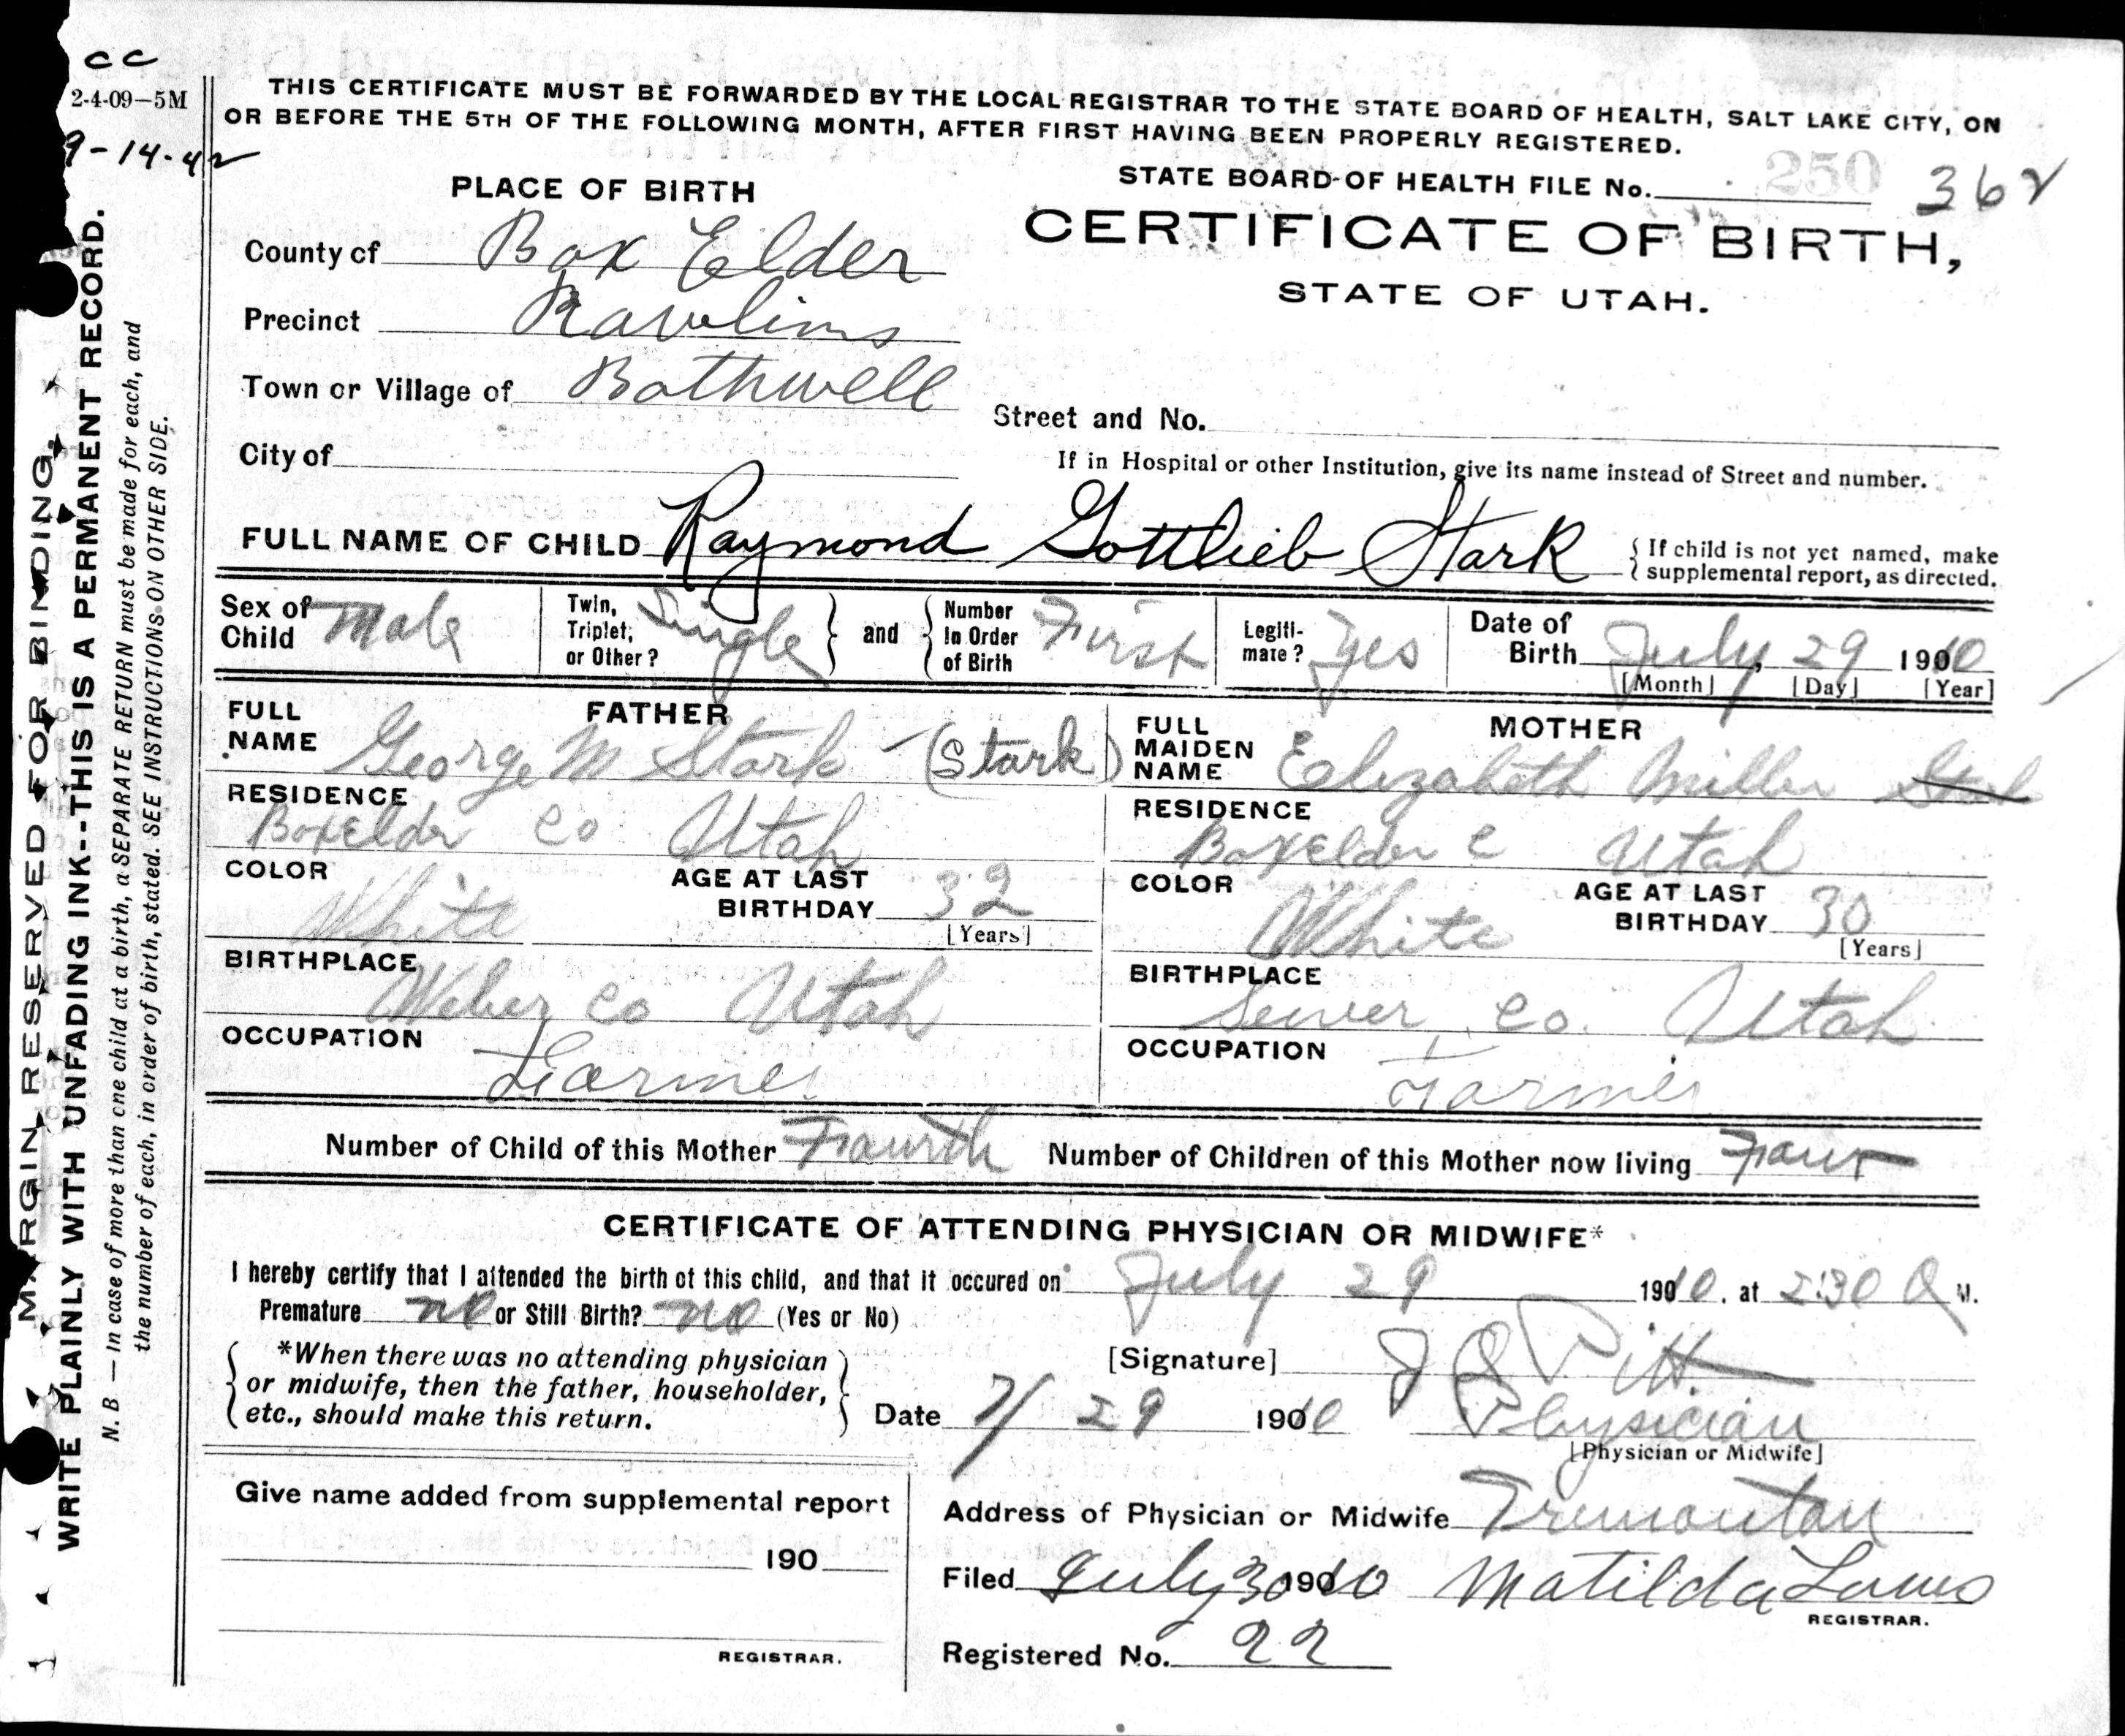 cc
2-4-09—5M
9-14-42
THIS CERTIFICATE MUST BE FORWARDED BY THE LOCAL REGISTRAR TO THE STATE BOARD OF HEALTH, SALT LAKE CITY, ON
OR BEFORE THE 5TH OF THE FOLLOWING MONTH, AFTER FIRST HAVING BEEN PROPERLY REGISTERED.
STATE BOARD OF HEALTH FILE No. 250 362
PLACE OF BIRTH
CERTIFICATE OF BIRTH,
STATE OF UTAH.
County of Box Elder
Precinct Rawlins
Town or Village of Bothwell
Street and No.
City of
If in Hospital or other Institution, give its name instead of Street and number.
FULL NAME OF CHILD Raymond Gottlieb Stark
{ If child is not yet named, make
supplemental report, as directed.
Sex of Child Male
Twin, Triplet, or Other? Single } and { Number In Order of Birth First
Legiti-mate? Yes
Date of Birth July, 29 1910
[Month] [Day] [Year]
FATHER
FULL NAME George M Stark - (Stark)
RESIDENCE
BoxElder Co Utah
COLOR White
AGE AT LAST BIRTHDAY 32
[Years]
BIRTHPLACE
Weber Co Utah
OCCUPATION
Farmer
MOTHER
FULL MAIDEN NAME Eelizabeth Miller
RESIDENCE
BoxElder C Utah
COLOR White
AGE AT LAST BIRTHDAY 30
[Years]
BIRTHPLACE
Sevier, Co. Utah
OCCUPATION
Farmer
Number of Child of this Mother Fourth Number of Children of this Mother now living Four
CERTIFICATE OF ATTENDING PHYSICIAN OR MIDWIFE*
I hereby certify that I attended the birth of this child, and that it occured on July 29 1910, at 2:30 A M.
Premature no or Still Birth? no (Yes or No)
{ *When there was no attending physician
or midwife, then the father, householder,
etc., should make this return. }
[Signature] Pitt
Date 7/29 1910 Physician
[Physician or Midwife]
Give name added from supplemental report
190
REGISTRAR.
Address of Physician or Midwife Tremonton
Filed July 30 1910 Matilda
REGISTRAR.
Registered No. 22
MARGIN RESERVED FOR BINDING.
WRITE PLAINLY WITH UNFADING INK--THIS IS A PERMANENT RECORD.
N. B — In case of more than one child at a birth, a SEPARATE RETURN must be made for each, and
the number of each, in order of birth, stated. SEE INSTRUCTIONS ON OTHER SIDE.